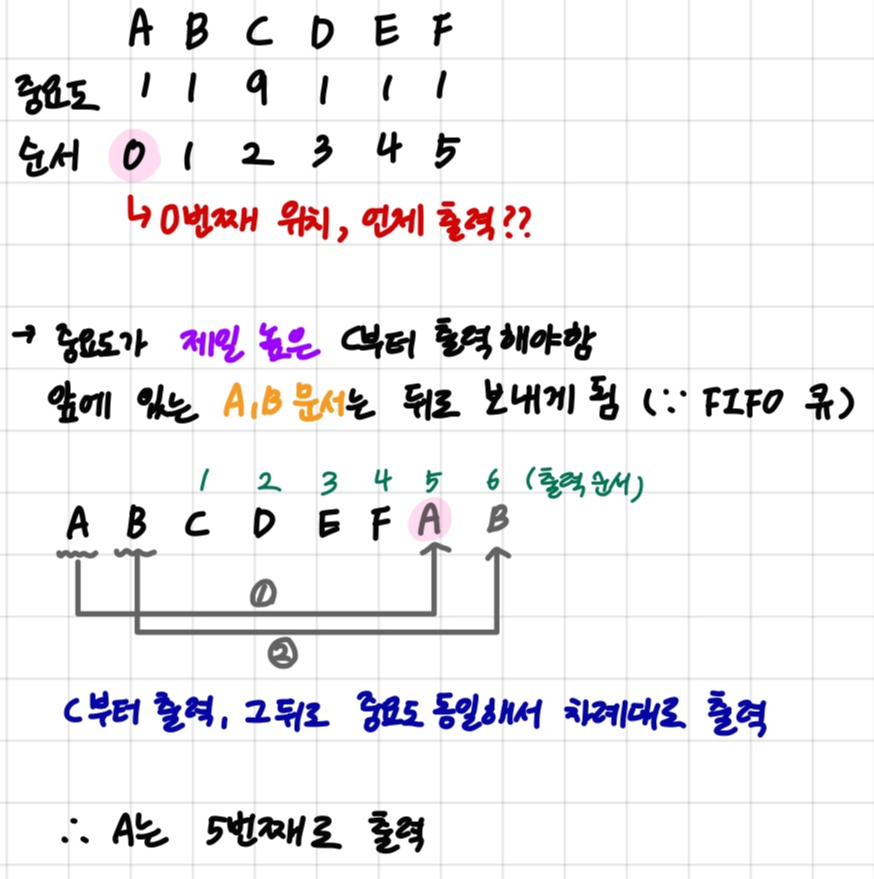 A B C D E F
중요도 1 1 9 1 1 1
순서 0 1 2 3 4 5
↳ 0번째 위치, 언제 출력??
→ 중요도가 제일 높은 C부터 출력해야함
앞에 있는 A,B 문서는 뒤로 보내게 됨 (∵ FIFO 큐)
1 2 3 4 5 6 (출력순서)
A B C D E F A B
①
②
C부터 출력, 그뒤로 중요도 동일해서 차례대로 출력
∴ A는 5번째로 출력